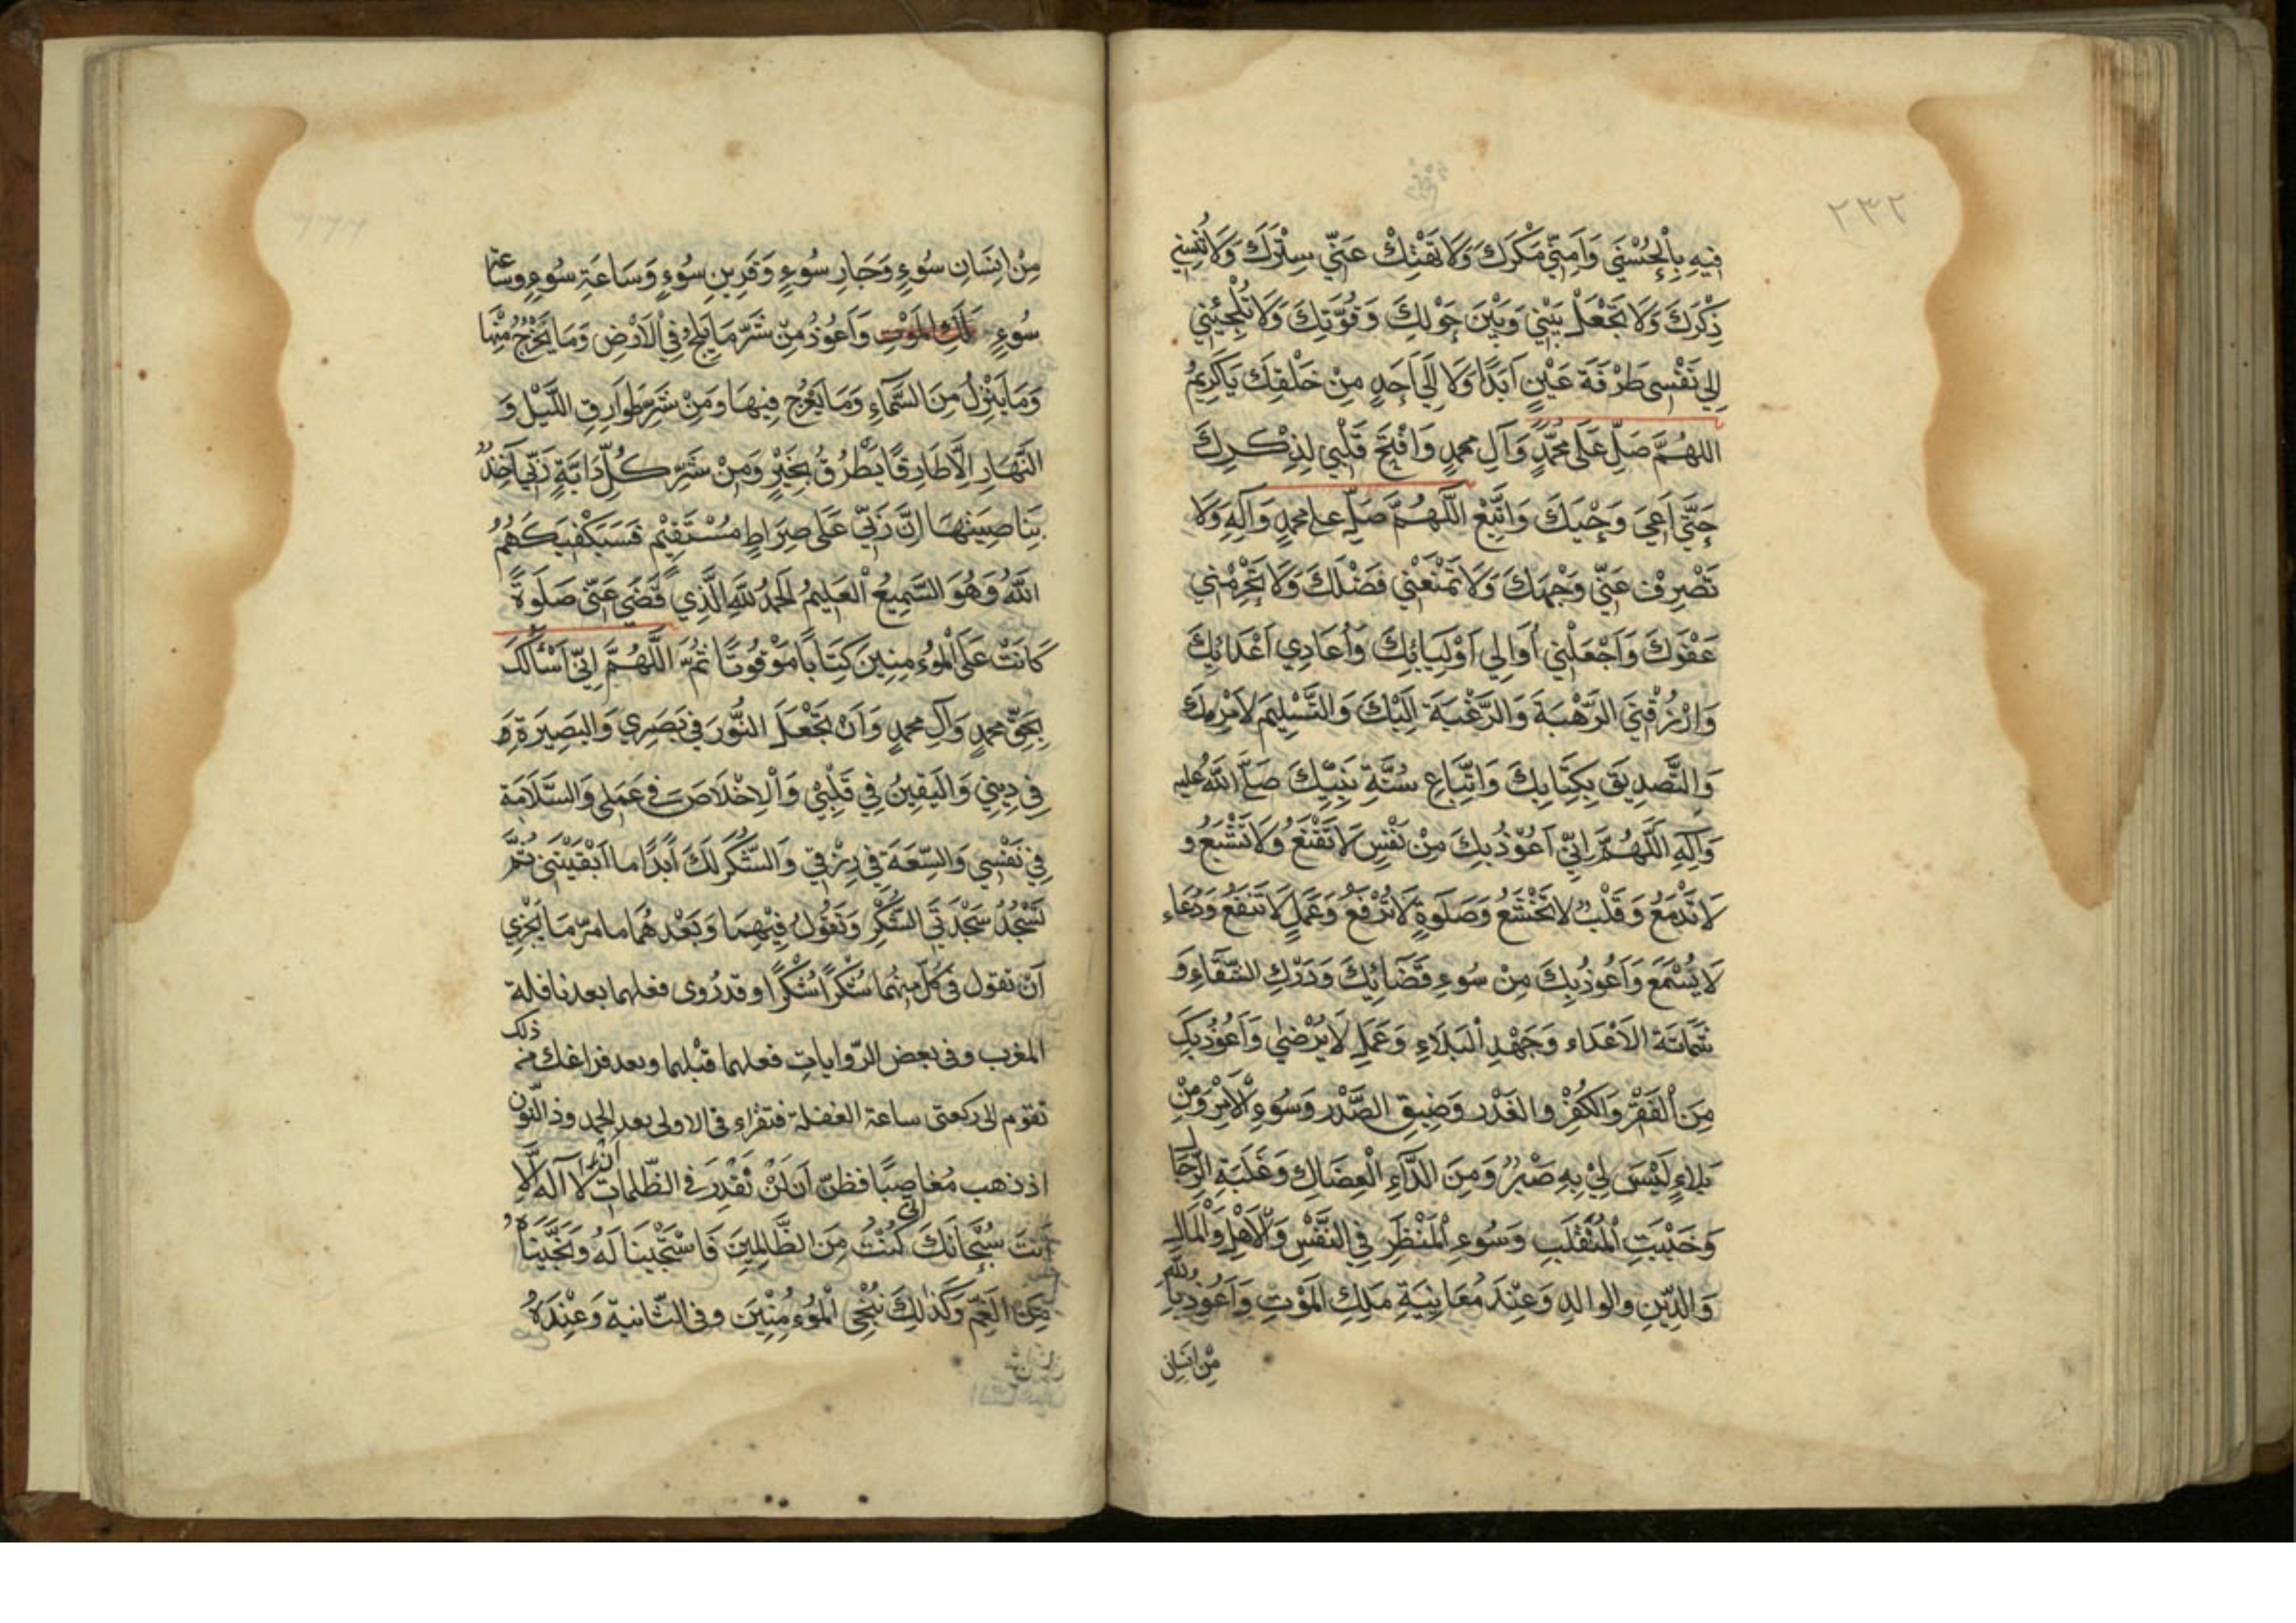 ٢٣٢
فِيهِ بِالْحُسْنَى وَآمِنِّي مَكْرَكَ وَلَا تَهْتِكْ عَنِّي سِتْرَكَ وَلَا تُنْسِنِي
ذِكْرَكَ وَلَا تَجْعَلْ بَيْنِي وَبَيْنَ حَوْلِكَ وَقُوَّتِكَ وَلَا تُلْجِئْنِي
إِلَى نَفْسِي طَرْفَةَ عَيْنٍ أَبَدًا وَلَا إِلَى أَحَدٍ مِنْ خَلْقِكَ يَا كَرِيمُ
اللهُمَّ صَلِّ عَلَى مُحَمَّدٍ وَآلِ مُحمدٍ وَافْتَحْ قَلْبِي لِذِكْرِكَ
حَتَّى أَعِيَ وَحْيَكَ وَاتَّبِعْ اللَّهُمَّ صَلِّ على محمدٍ وَآلِهِ وَلَا
تَصْرِفْ عَنِّي وَجْهَكَ وَلَا تَمْنَعْنِي فَضْلَكَ وَلَا تَحْرِمْنِي
عَفْوَكَ وَاجْعَلْنِي أُوَالِي أَوْلِيَائِكَ وَأُعَادِي أَعْدَائِكَ
وَارْزُقْنِي الرَّهْبَةَ وَالرَّغْبَةَ إِلَيْكَ وَالتَّسْلِيمَ لِأَمْرِكَ
وَالتَّصْدِيقَ بِكِتَابِكَ وَاتِّبَاعِ سُنَّةِ نَبِيِّكَ صَلَّى اللهُ عليه
وَآلِهِ اللَّهُمَّ إِنِّي أَعُوذُ بِكَ مِنْ نَفْسٍ لَا تَقْنَعُ وَلَا تَشْبَعُ و
لَا تَدْمَعُ وَقَلْبٍ لا يَخْشَعُ وَصَلَوةٍ لَا تُرْفَعُ وَعَمَلٍ لَا تَنْفَعُ وَدُعَاءٍ
لَا يُسْمَعُ وَأَعُوذُ بِكَ مِنْ سُوءِ قَضَائِكَ وَدَرَكِ الشَّقَاءِ وَ
شَمَاتَةِ الأَعْدَاءِ وَجَهْدِ الْبَلَاءِ وَعَمَلٍ لَا يُرْضَى وَأَعُوذُ بِكَ
مِنَ الْفَقْرِ وَالكُفْرِ والغَدْرِ وَضِيقِ الصَّدْرِ وَسُوءِ الْأَمْرِ وَمِنْ
بَلَاءٍ لَيْسَ لِي بِهِ صَبْرٌ وَمِنَ الدَّاءِ الْعِضَالِ وَغَلَبَةِ الرِّجَال
وَخَيْبَتِ الْمُنْقَلَبِ وَسُوءِ الْمَنْظَرِ فِي النَّفْسِ وَالْأَهْلِ وَالْمَالِ
وَالدِّينِ والوالدِ وَعِنْدَ مُعَايَنَةِ مَلَكِ الْمَوْتِ وَأَعُوذُ بِاللهِ
مِنْ إِنْسَانِ
مِنْ إِنْسَانِ سُوءٍ وَجَارِ سُوءٍ وَقَرِينِ سُوءٍ وَسَاعَةِ سُوءٍ وساعة
سُوءٍ ملك الموتِ وَأَعُوذُ مِنْ شَرِّ مَا يَلِجُ فِي الْأَرْضِ وَمَا يَخْرُجُ مِنْهَا
وَمَا يَنْزِلُ مِنَ السَّمَاءِ وَمَا يَعْرُجُ فِيهَا وَمِنْ شَرِّ طَوَارِقِ اللَّيْلِ وَ
النَّهَارِ إِلَّا طَارِقًا يَطْرُقُ بِخَيْرٍ وَمِنْ شَرِّ كُلِّ دَابَّةٍ رَبِّي آخِذٌ
بِنَاصِيَتِهَا إِنَّ رَبِّي عَلَى صِرَاطٍ مُسْتَقِيمٍ فَسَيَكْفِيكَهُمُ
اللهُ وَهُوَ السَّمِيعُ الْعَلِيمُ الحَمْدُ للهِ الَّذِي قَضَى عَنِّي صَلَوةً
كَانَتْ عَلَى الْمُؤمِنِينَ كِتَابًا مَوْقُوتًا ثُمَّ اللَّهُمَّ إِنِّي أَسْأَلُكَ
بِحَقِّ محمدٍ وَآلِ محمدٍ وَأَنْ تَجْعَلَ النُّورَ فِي بَصَرِي وَالبَصِيرَةِ وَ
فِي دِينِي وَالْيَقِينُ فِي قَلْبِي وَالْإِخْلَاصَ فِي عَمَلِي وَالسَّلَامَةَ
فِي نَفْسِي وَالسِّعَةَ فِي رِزْقِي وَالشُّكْرَ لَكَ أَبَدًا ما أَبْقَيْتَنِي ثُمَّ
تَسْجُدُ سَجْدَتَيِ الشُّكْرِ وَتَقُولُ فِيهِمَا وَبَعْدَهُمَا ما مرّ مَا يَجْزِي
أَنْ تقول فى كُلّ مِنْهُما شُكْرًا شُكْرًا وقد رُوى فعلهما بعد نافلة
المغرب وفى بعض الرّواياتِ فعلهما قبْلها وبعد فراغك من ذلك
تقوم الى ركعتى ساعة الغفلة فتقراء فى الاولى بعد الحمد وذا النّون
اذ ذهب مُغاضِبًا فظنّ أَنْ لَنْ نَقْدِرَ فى الظّلمات ان لا اله الّا
أنتَ سُبْحَانَكَ انى كُنْتُ مِنَ الظَّالِمِينَ فَاسْتَجَبْنا لَهُ وَنَجَّيْنَاهُ
مِنَ الْغَمِّ وَكَذَلِكَ نُنْجِي الْمُؤمِنِينَ وفى الثّانية وَعِنْدَهُ